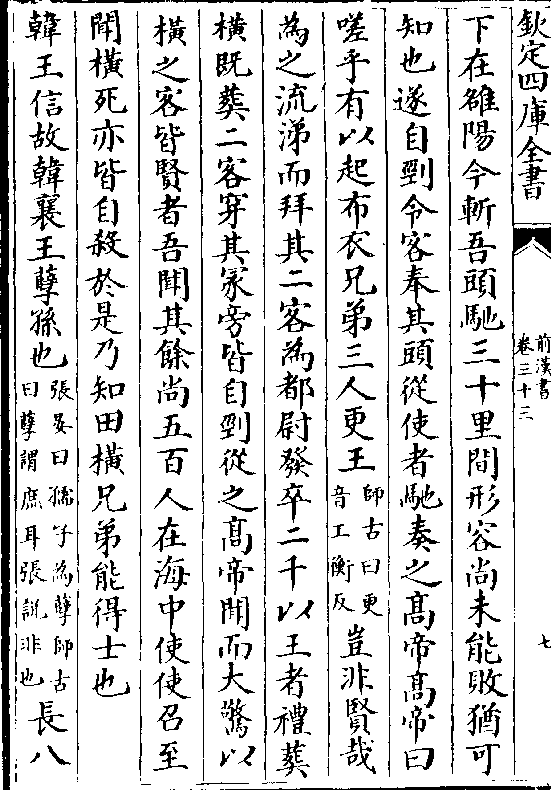 欽定四庫全書
前漢書
卷三十三
七
下在雒陽今斬吾頭馳三十里間形容尚未能敗猶可
知也遂自剄令客奉其頭從使者馳奏之髙帝髙帝曰
嗟乎有以起布衣兄弟三人更王師古曰更音工衡反豈非賢哉
為之流涕而拜其二客為都尉發卒二千以王者禮葬
橫既葬二客穿其冢旁皆自剄從之髙帝聞而大驚以
橫之客皆賢者吾聞其餘尚五百人在海中使使召至
聞橫死亦皆自殺於是乃知田橫兄弟能得士也
韓王信故韓襄王孽孫也張晏曰孺子為孽師古曰孽謂庶耳張說非也長八